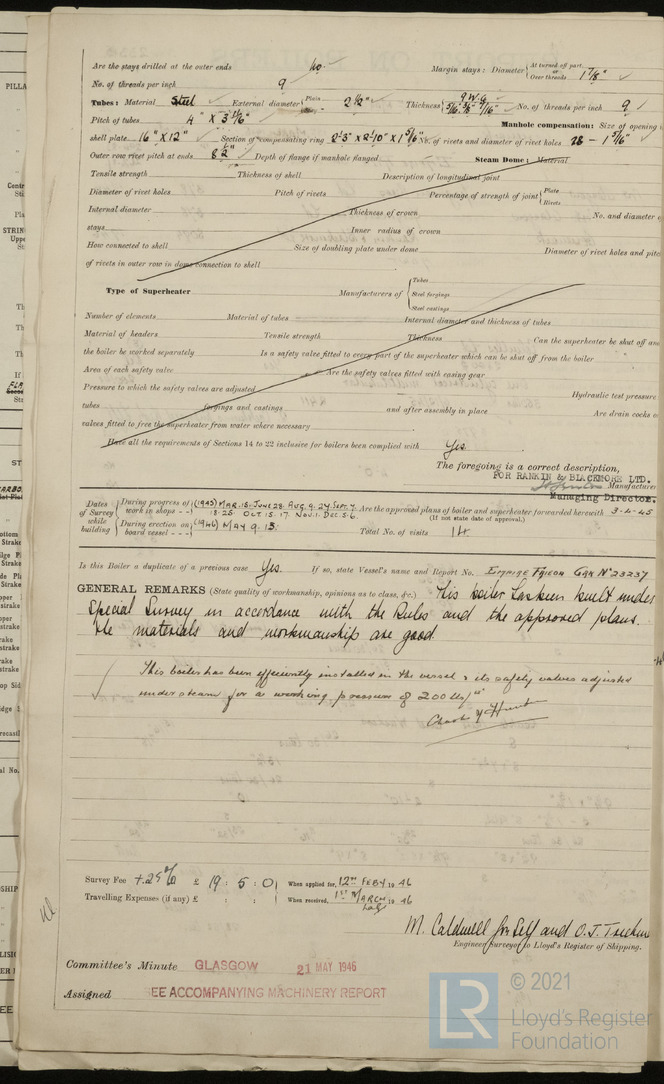 Are the stays drilled at the outer ends No. Margin stays: Diameter At turned off part, or Over threads 1 7/8"
No. of threads per inch 9
Tubes: Material Steel External diameter Plain 2 1/2" Thickness 9 W.G. 5/16" 3/8" 7/16" No. of threads per inch 9
Pitch of tubes 4" X 3 11/16" Manhole compensation: Size of opening i
shell plate 16" X 12" Section of compensating ring No. of rivets and diameter of rivet holes 28 - 1 5/16"
Outer row rivet pitch at ends 8 1/2" Depth of flange if manhole flanged Steam Dome: Material
Tensile strength Thickness of shell Description of longitudinal joint
Diameter of rivet holes Pitch of rivets Percentage of strength of joint Plate Rivets
Internal diameter Thickness of crown No. and diameter o
stays Inner radius of crown
How connected to shell Size of doubling plate under dome Diameter of rivet holes and pitc
of rivets in outer row in dome connection to shell
Type of Superheater Manufacturers of Tubes Steel forgings Steel castings
Number of elements Material of tubes Internal diameter and thickness of tubes
Material of headers Tensile strength Thickness Can the superheater be shut off an
the boiler be worked separately Is a safety valve fitted to every part of the superheater which can be shut off from the boiler
Area of each safety valve Are the safety valves fitted with easing gear
Pressure to which the safety valves are adjusted Hydraulic test pressure
tubes forgings and castings and after assembly in place Are drain cocks o
valves fitted to free the superheater from water where necessary
Have all the requirements of Sections 14 to 22 inclusive for boilers been complied with Yes.
The foregoing is a correct description,
FOR RANKIN & BLACKMORE LTD.
Manufacture
Managing Director.
Dates of Survey while building
During progress of work in shops - - (1945) MAR. 15. JUNE 28. AUG. 9. 24. SEPT. 7. 18. 25. OCT. 15. 17. NOV. 1. DEC. 5. 6.
Are the approved plans of boiler and superheater forwarded herewith 3-4-45
(If not state date of approval.)
During erection on board vessel - - - (1946) MAY 9. 13. Total No. of visits 14
Is this Boiler a duplicate of a previous case Yes. If so, state Vessel's name and Report No. EMPIRE Grk No 23237
GENERAL REMARKS (State quality of workmanship, opinions as to class, &c.) This boiler has been built under
Special Survey in accordance with the Rules and the approved plans.
The materials and workmanship are good.
This boiler has been efficiently installed in the vessel & its safety valves adjusted
under steam for a working pressure of 200 lbs/□"
Survey Fee +25% £ 19 : 5 : 0 When applied for, 12TH FEBY 1946
Travelling Expenses (if any) £ : : When received, 1ST MARCH 1946
M. Caldwell for Self and O. J.
Engineer Surveyor to Lloyd's Register of Shipping.
Committee's Minute GLASGOW 21 MAY 1946
Assigned EE ACCOMPANYING MACHINERY REPORT
LR © 2021
Lloyd's Register
Foundation